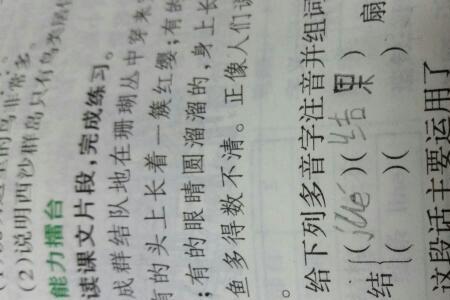 非常多。
(2)说明西沙群岛只有鱼类
能力擂台
读课文片段,完成练习。
成群结队地在珊瑚丛中穿来
有的头上长着一簇红缨;有的
;有的眼睛圆溜溜的,身上长
鱼多得数不清。正像人们说
给下列多音字注音并组词
结{(jié)(结果) 扇
( )( )
这段话主要运用了